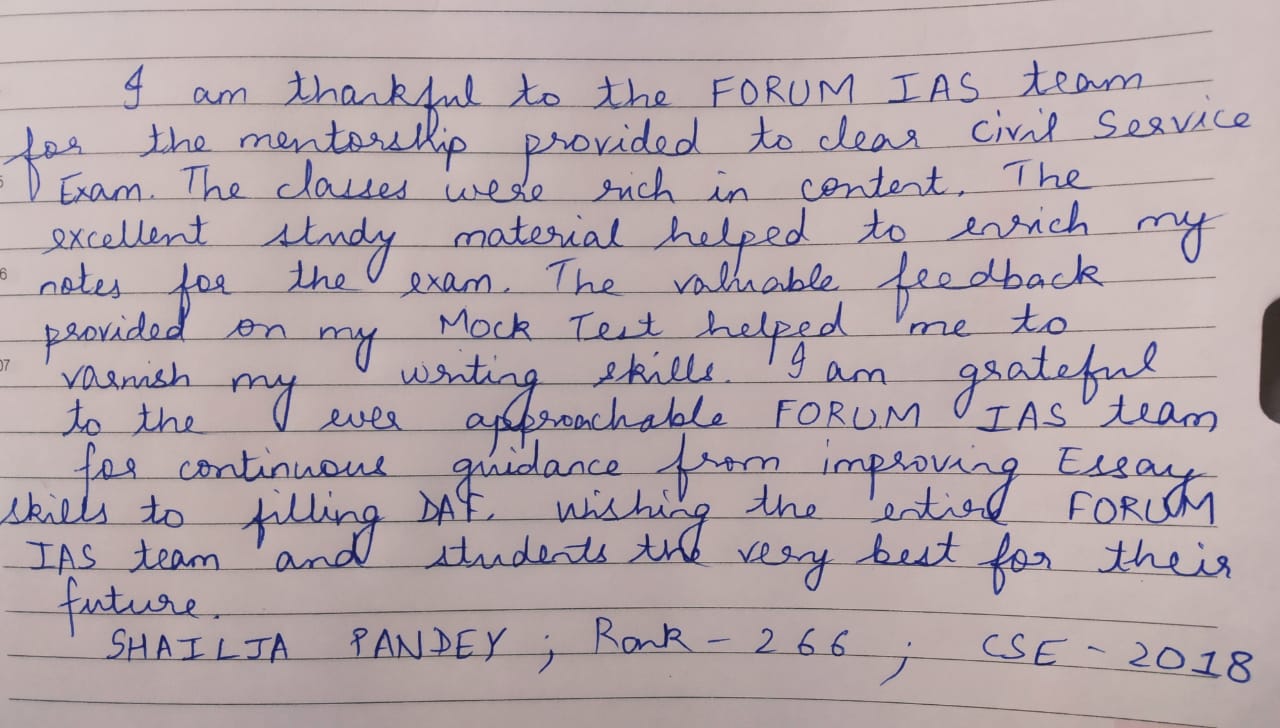 I am thankful to the FORUM IAS team
for the mentorship provided to clear Civil Service
Exam. The classes were rich in content. The
excellent study material helped to enrich my
notes for the exam. The valuable feedback
provided on my Mock Test helped me to
varnish my writing skills. I am grateful
to the ever approachable FORUM IAS team
for continuous guidance from improving Essay
skills to filling DAF. Wishing the entire FORUM
IAS team and students the very best for their
future.
SHAILJA PANDEY ; Rank - 266 ; CSE - 2018